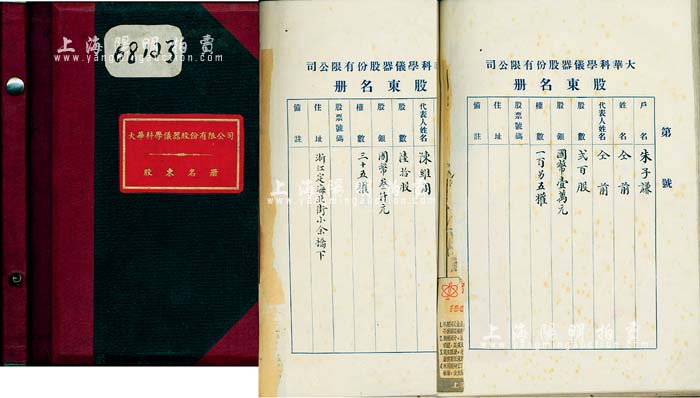 上海陽明拍賣
www.yangmingauction.com
68103
大華科學儀器股份有限公司
股東名册
科學儀器股份有限公司
股東名册
代表人姓名 陳維周
股數 陸拾股
股銀 國幣叁仟元
權數 三十五權
股票號碼
住址 浙江定海北街小余橋下
備註
大華科學儀器股份有限公司
股東名册
第 號
戶名 朱子謙
姓名 仝前
代表人姓名 仝前
股數 貳百股
股銀 國幣壹萬元
權數 一百另五權
股票號碼
住址
備註